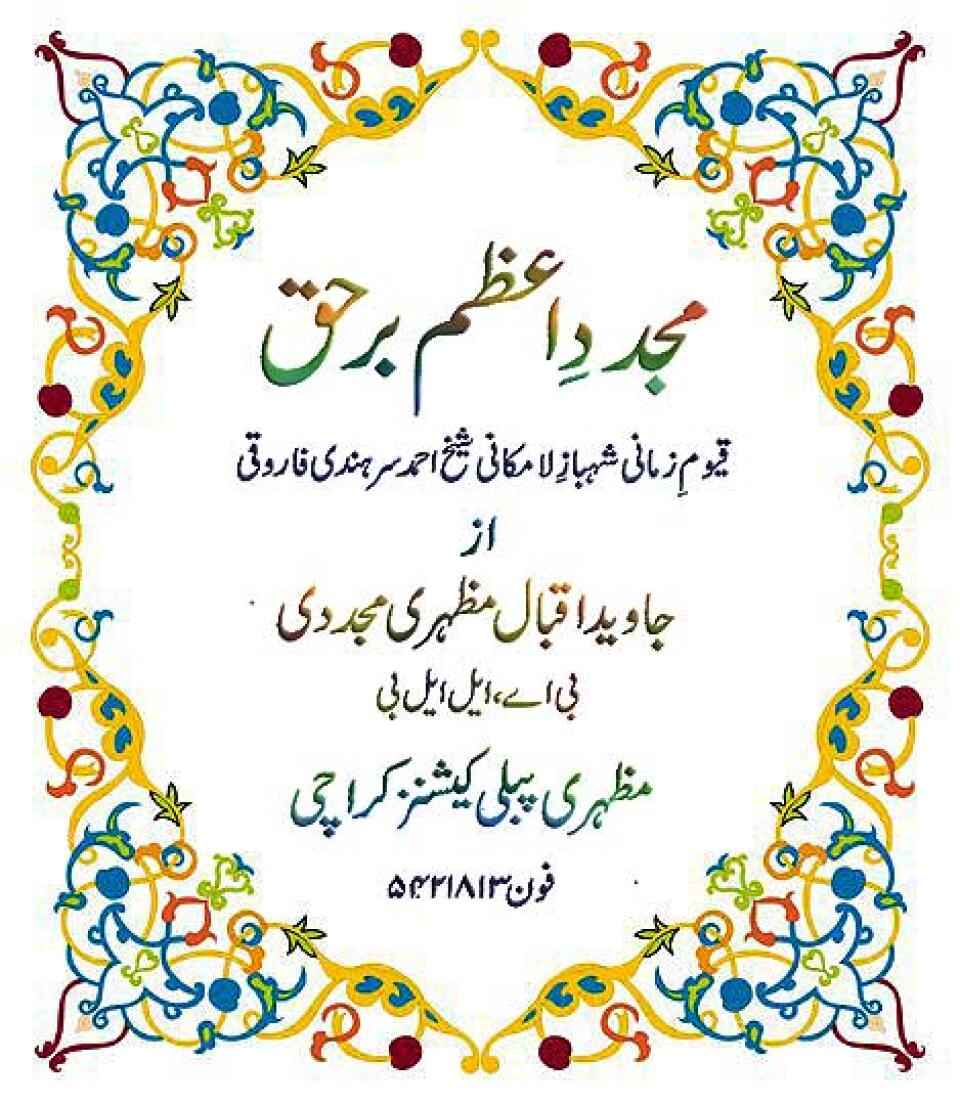 مجددِ اعظم برحق
قیومِ زمانی شہبازِ لامکانی شیخ احمد سرہندی فاروقی
از
جاوید اقبال مظہری مجددی
بی اے، ایل ایل بی
مظہری پبلی کیشنز کراچی
فون ۵۴۲۱۸۱۳